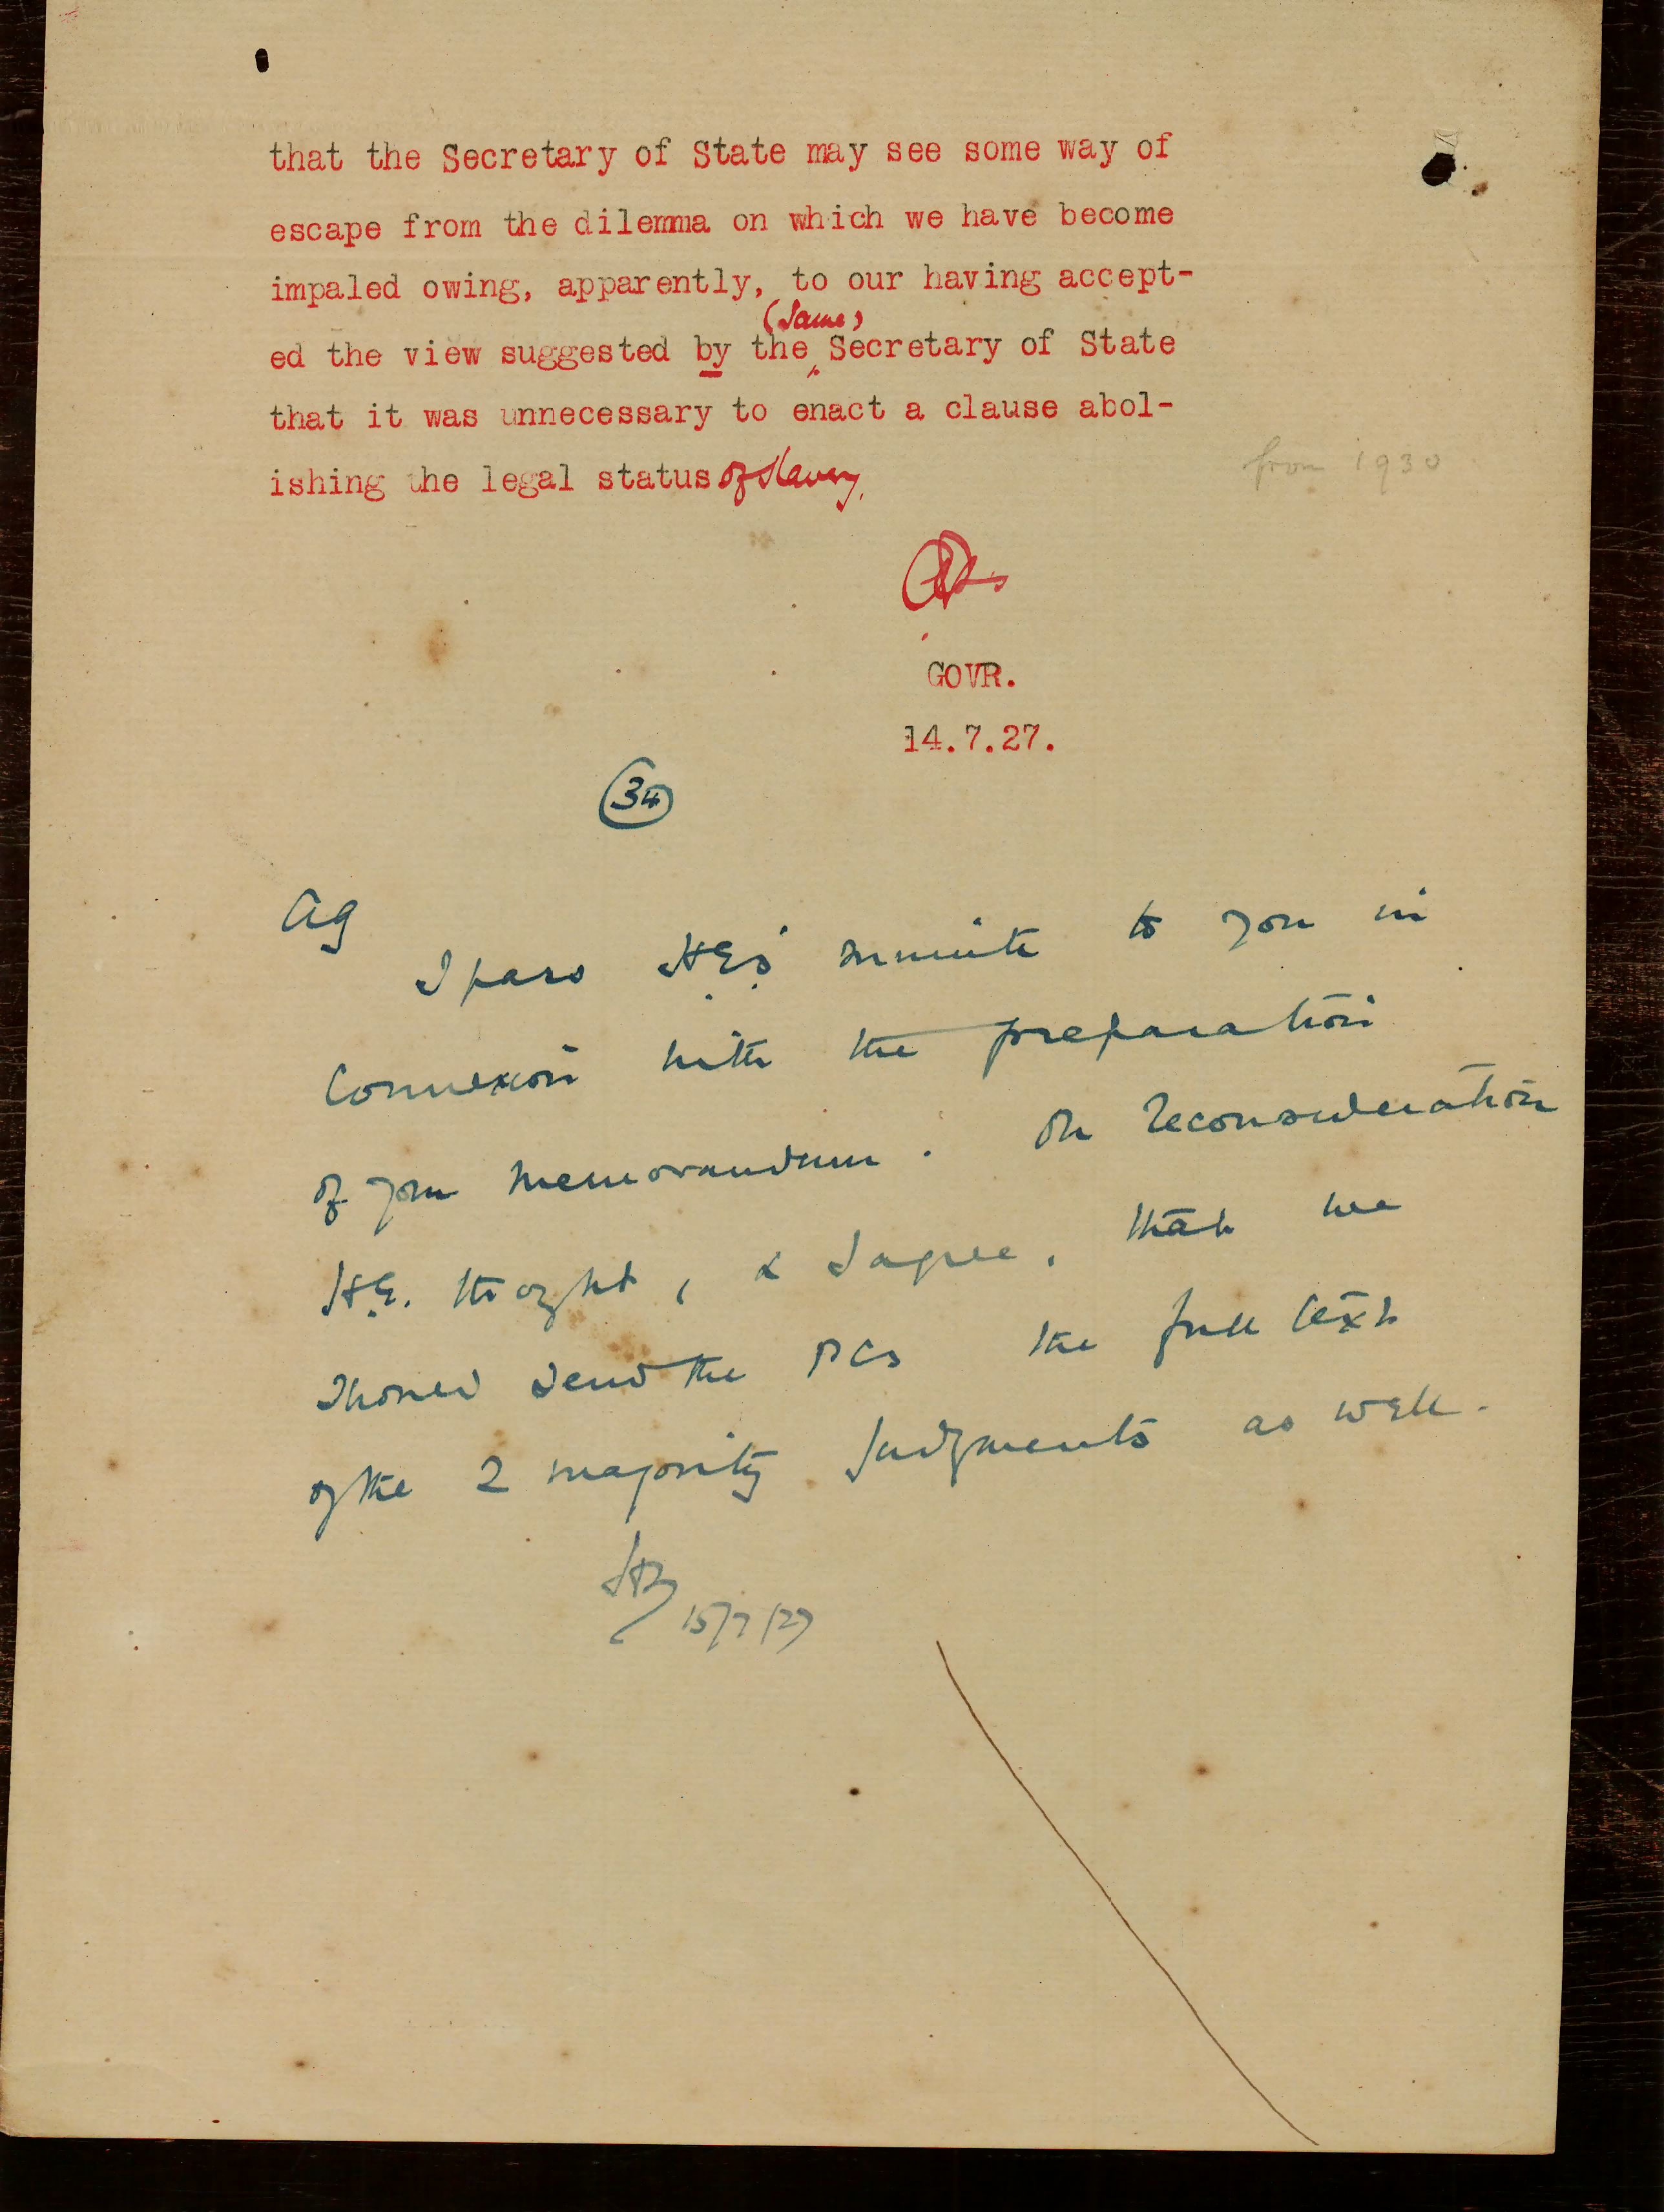 that the Secretary of State may see some way of
escape from the dilemma on which we have become
impaled owing, apparently, to our having accept-
(same)
ed the view suggested by the Secretary of State
that it was unnecessary to enact a clause abol-
ishing the legal status of slavery.
from 1930
GOVR.
14.7.27.
34
AG
I pass H.E.'s minute to you in
connexion with the preparation
of your memorandum. On reconsideration
H.E. thought, & I agree, that we
should send the PCs the full text
of the 2 majority judgments as well.
15/7/27